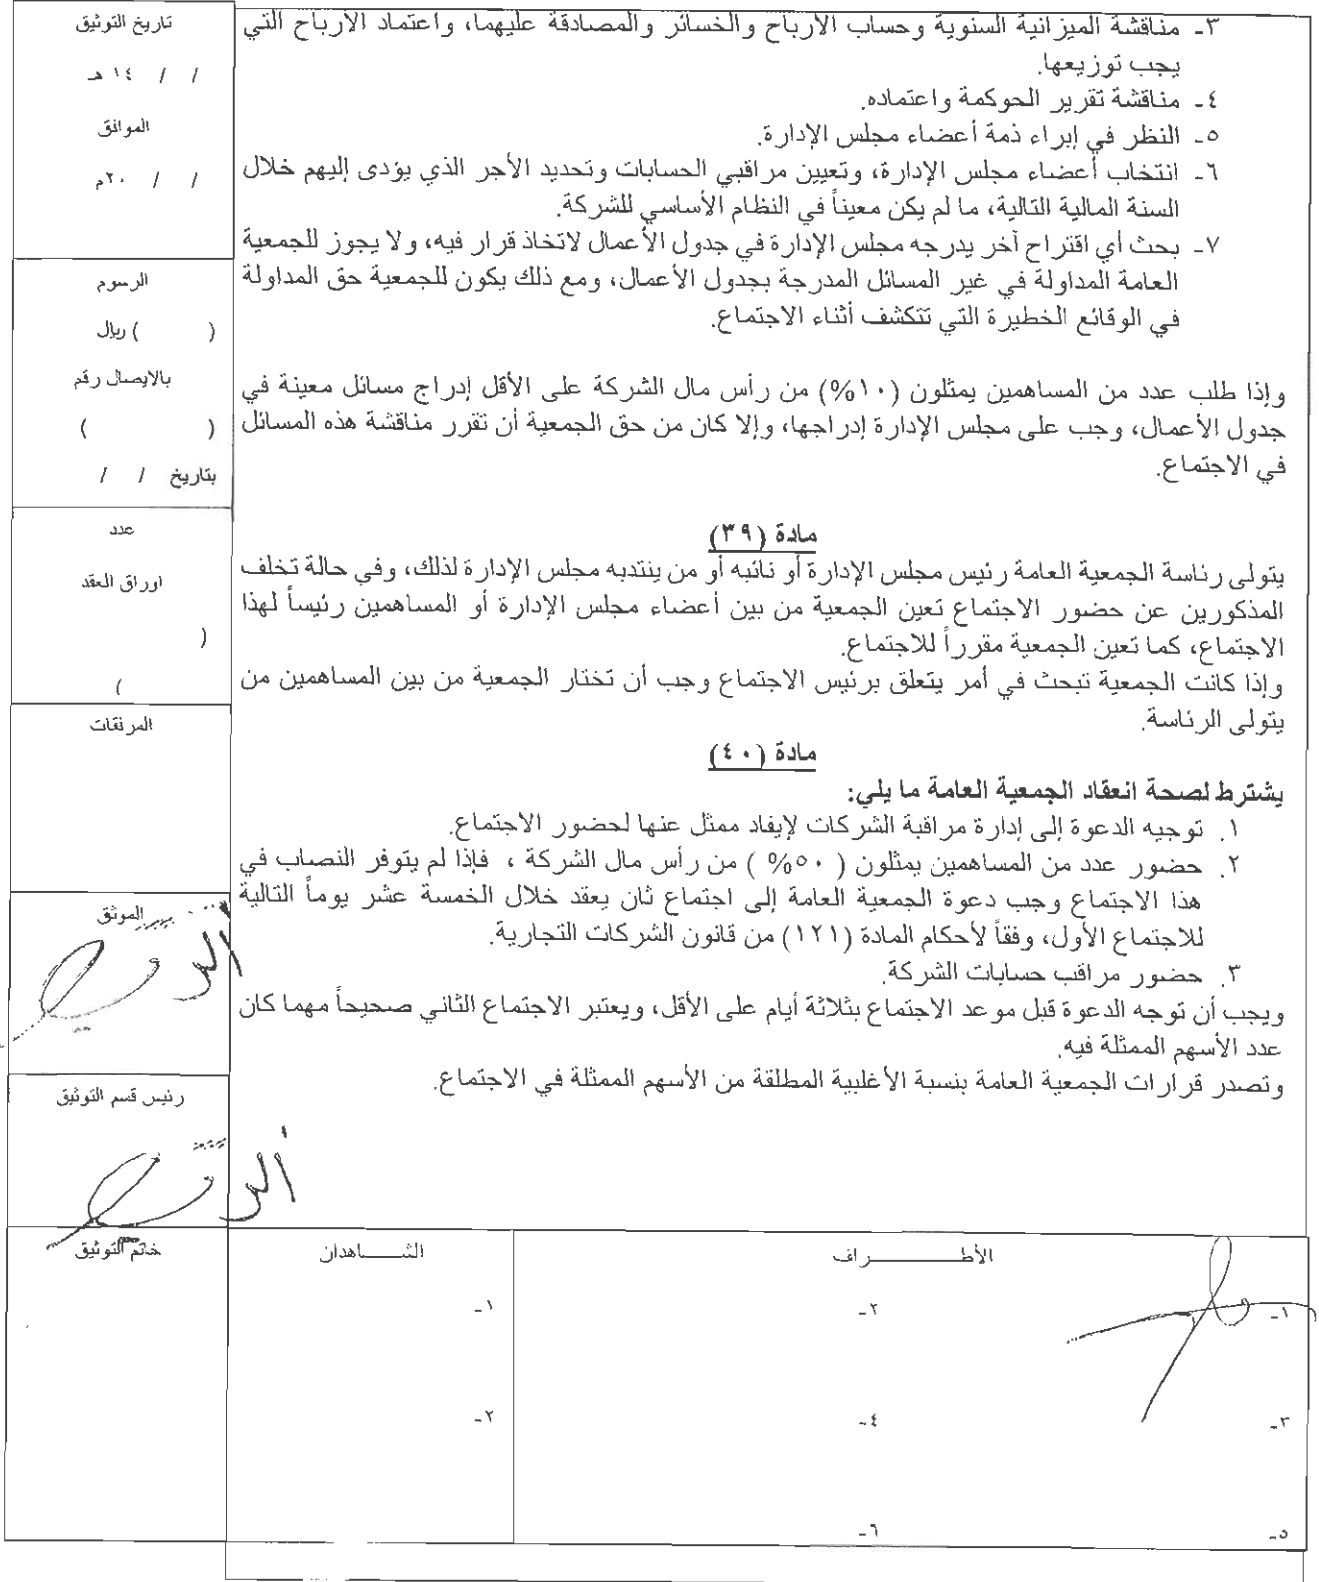 ٣- مناقشة الميزانية السنوية وحساب الأرباح والخسائر والمصادقة عليهما، واعتماد الأرباح التي
يجب توزيعها.
٤- مناقشة تقرير الحوكمة واعتماده.
٥- النظر في إبراء ذمة أعضاء مجلس الإدارة.
٦- انتخاب أعضاء مجلس الإدارة، وتعيين مراقبي الحسابات وتحديد الأجر الذي يؤدى إليهم خلال
السنة المالية التالية، ما لم يكن معيناً في النظام الأساسي للشركة.
٧- بحث أي اقتراح آخر يدرجه مجلس الإدارة في جدول الأعمال لاتخاذ قرار فيه، ولا يجوز للجمعية
العامة المداولة في غير المسائل المدرجة بجدول الأعمال، ومع ذلك يكون للجمعية حق المداولة
في الوقائع الخطيرة التي تتكشف أثناء الاجتماع.
وإذا طلب عدد من المساهمين يمثلون (١٠%) من رأس مال الشركة على الأقل إدراج مسائل معينة في
جدول الأعمال، وجب على مجلس الإدارة إدراجها، وإلا كان من حق الجمعية أن تقرر مناقشة هذه المسائل
في الاجتماع.
مادة (٣٩)
يتولى رئاسة الجمعية العامة رئيس مجلس الإدارة أو نائبه أو من ينتدبه مجلس الإدارة لذلك، وفي حالة تخلف
المذكورين عن حضور الاجتماع تعين الجمعية من بين أعضاء مجلس الإدارة أو المساهمين رئيساً لهذا
الاجتماع، كما تعين الجمعية مقرراً للاجتماع.
وإذا كانت الجمعية تبحث في أمر يتعلق برئيس الاجتماع وجب أن تختار الجمعية من بين المساهمين من
يتولى الرئاسة.
مادة (٤٠)
يشترط لصحة انعقاد الجمعية العامة ما يلي:
١. توجيه الدعوة إلى إدارة مراقبة الشركات لإيفاد ممثل عنها لحضور الاجتماع.
٢. حضور عدد من المساهمين يمثلون ( ٥٠% ) من رأس مال الشركة ، فإذا لم يتوفر النصاب في
هذا الاجتماع وجب دعوة الجمعية العامة إلى اجتماع ثان يعقد خلال الخمسة عشر يوماً التالية
للاجتماع الأول، وفقاً لأحكام المادة (١٢١) من قانون الشركات التجارية.
٣. حضور مراقب حسابات الشركة.
ويجب أن توجه الدعوة قبل موعد الاجتماع بثلاثة أيام على الأقل، ويعتبر الاجتماع الثاني صحيحاً مهما كان
عدد الأسهم الممثلة فيه.
وتصدر قرارات الجمعية العامة بنسبة الأغلبية المطلقة من الأسهم الممثلة في الاجتماع.
تاريخ التوثيق
/ / ١٤ هـ
الموافق
/ / ٢٠م
الرسوم
( ) ريال
بالايصال رقم
( )
بتاريخ / /
عدد
اوراق العقد
(
)
المرفقات
الموثق
رئيس قسم التوثيق
خاتم التوثيق
الأطــــــــراف
١-
٢-
٣-
٤-
٥-
٦-
الشـــــاهدان
١-
٢-